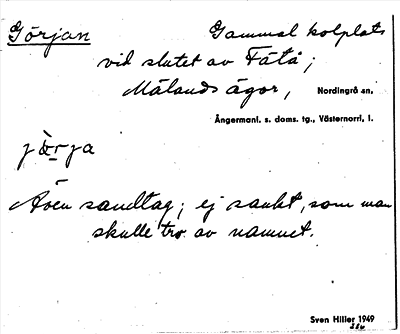 Görjan Gammal kolplats
vid slutet av Fätå;
Mälands ägor, Nordingrå sn,
Ångermanl. s. doms. tg., Västernorrl. l.
jö̀rja
Även sandtag; ej sankt, som man
skulle tro av namnet.
Sven Hiller 1949